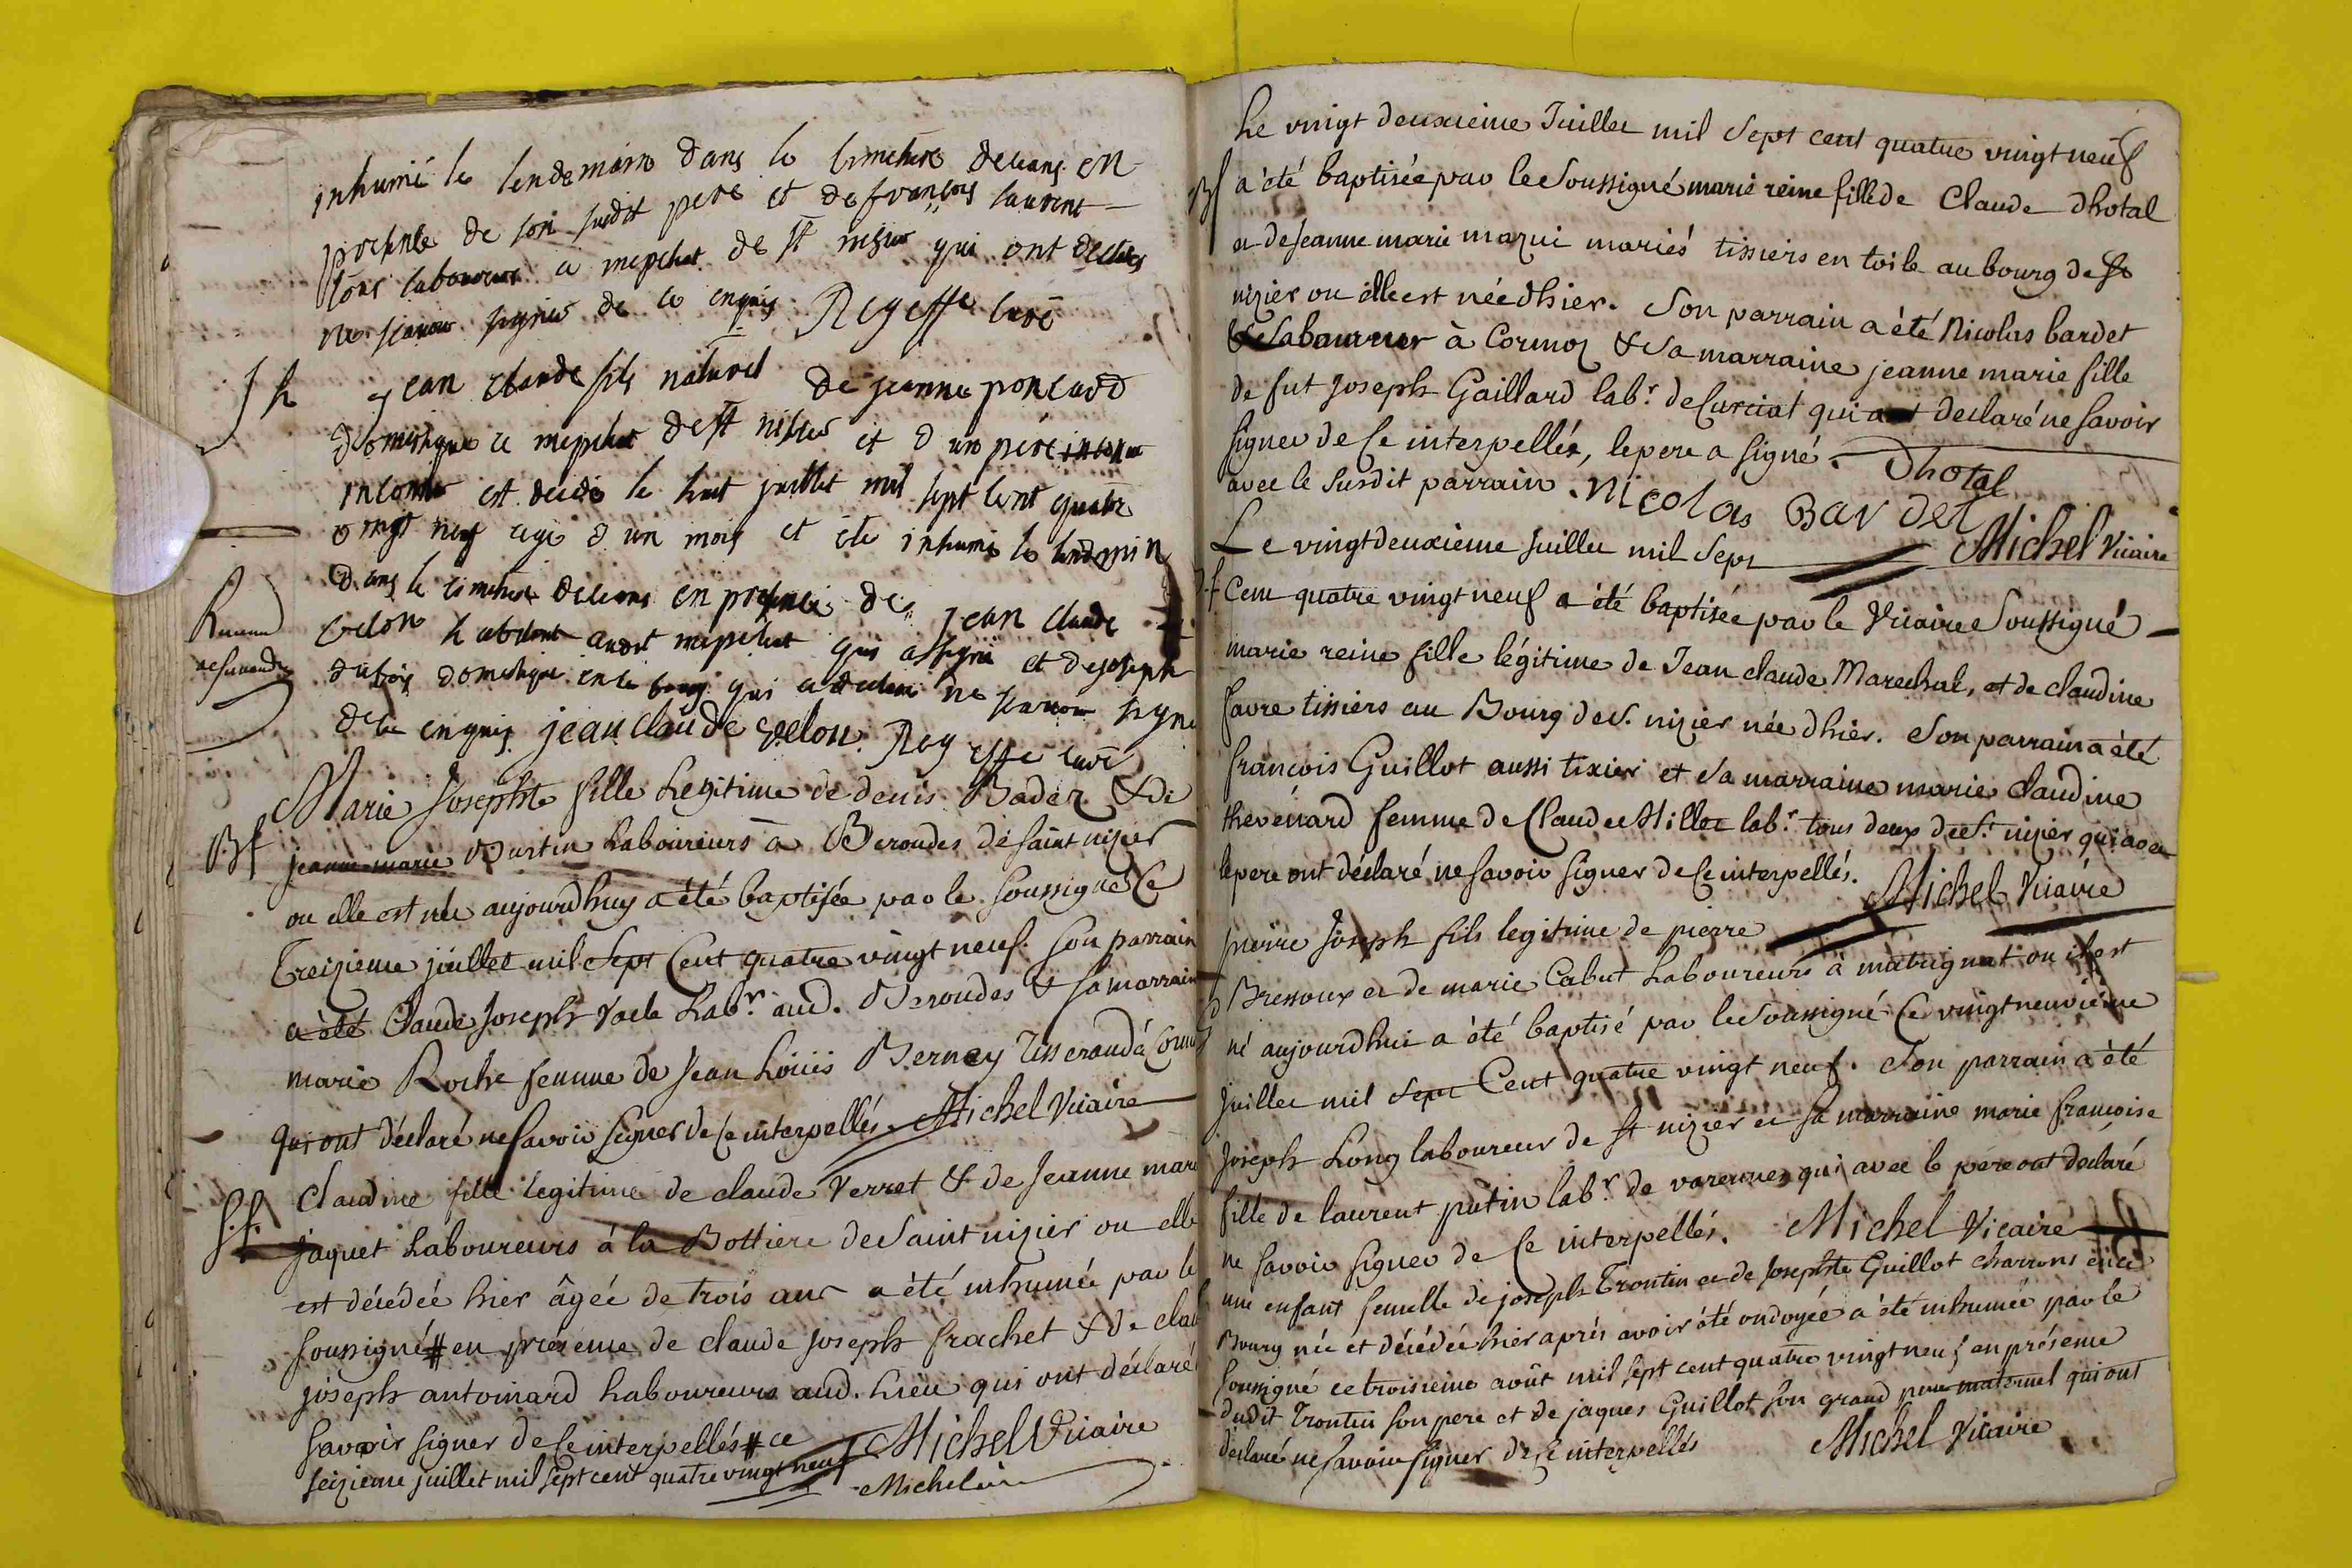 inhumé le lendemain dans le cimetiere deceans en
presence de son susdit pere et de francois laurent
tous laboureurs a mepchat de st nisier qui ont declaré
ne scavoir signer de ce enquis Regeffe curé
S h
jean claude fils naturel de jeanne poncard
domestique a mepchat de st nisier et d un pére
inconnu est decedé le huit juillet mil sept cent quatre
vingt neuf agé d un mois et été inhumé le lendemin
dans le cimetiere deceans en presence de jean claude
velon habitant audit mepchat qui a signé et de joseph
dubois domestique en ce bourg qui a declaré ne scavoir signé
de ce enquis. jean claude velon. Regeffe curé
Marie Josephte fille Legitime de denis Badez & de
Bf
jeanne marie Burtin Laboureurs à Beroudes de saint nizier
ou elle est née aujourdhuy a été baptisée par le soussigné Ce
Treizieme juillet mil Sept Cent quatre vingt neuf. Son parrain
a été Claude Joseph vacle Labr. aud. Beroudes & sa marraine
marie Roche femme de Jean Louis Bernay Tisserand à
qui ont déclaré ne Savoir Signer de Ce interpellés. Michel Vicaire
S.f.
Claudine fille legitime de claude Verret & de Jeanne marie
jaquet Laboureurs à la Bottiere de Saint nizier ou elle
est décédée hier âgée de trois ans a été inhumée par le
soussigné # en présence de claude joseph frachet & de
joseph antoinard Laboureurs aud. Lieu qui ont déclaré
Savoir signer de Ce interpellés # ce Michel Vicaire
seizieme juillet mil sept cent quatre vingt neuf
Le vingt deuxieme Juillet mil Sept cent quatre vingt neuf
Bf
a été baptisée par le Soussigné marie reine fille de Claude Dhotal
et de Jeanne marie mazui mariés tissiers en toile au bourg de St
nizier ou elle est née dhier. Son parrain a été Nicolas bardet
Laboureur à Cormoz & Sa marraine jeanne marie fille
de fut Joseph Gaillard labr. de Curciat qui a declaré ne Savoir
Signer de Ce interpellée, le pere a signé. Dhotal
avec le Susdit parrain. Nicolas Bardet
Michel Vicaire
Le vingt deuxieme juillet mil Sept
Cent quatre vingt neuf a été baptisée par le Vicaire Soussigné
marie reine fille légitime de Jean claude Marechal, et de claudine
favre tissiers au Bourg de S. nizier née dhier. Son parrain a été
francois Guillot aussi tixier et Sa marraine marie Claudine
thevénard femme de Claude Millet labr. tous deux de St. nizier qui avec
le pere ont déclaré ne Savoir Signer de Ce interpellés.
Michel Vicaire
pierre joseph fils legitime de pierre
Bressoux et de marie Cabut Laboureurs à matrignat ou il est
né aujourdhui a été baptisé par le Soussigné Ce vingt neuvieme
juillet mil Sept Cent quatre vingt neuf. Son parrain a été
joseph Long laboureur de st nizier et sa marraine marie francoise
fille de laurent putin labr. de varennes qui avec le pere ont declaré
ne Savoir Signer de Ce interpellés. Michel Vicaire
une enfant femelle de joseph Trontin et de Josephte Guillot charrons en ce
Bourg née et décédée hier après avoir été ondoyée a été inhumée par le
soussigné ce troisieme août mil sept cent quatre vingt neuf en présence
dudit Trontin son pere et de jaques Guillot son grand pere maternel qui ont
declaré ne Savoir signer de Ce interpellés Michel Vicaire